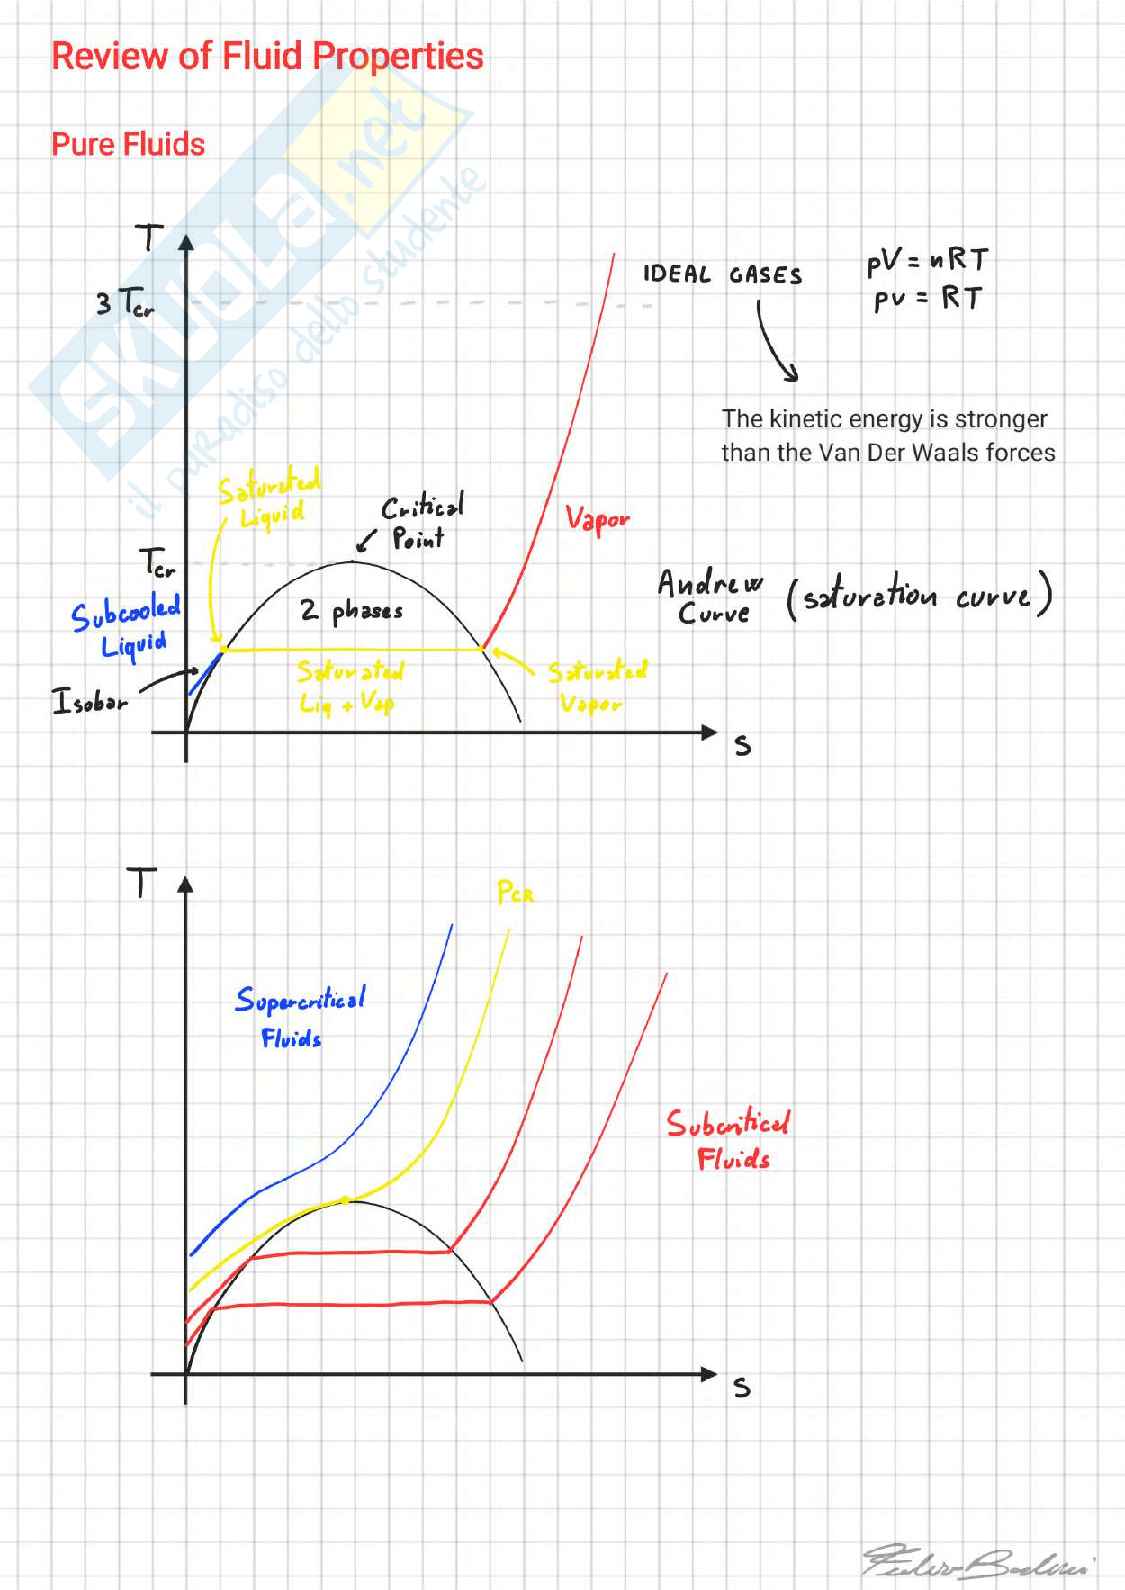 Review of Fluid Properties
Pure Fluids
SKUOLA.net
il paradiso dello studente
T
3 Tcr
IDEAL GASES
pV = nRT
pv = RT
The kinetic energy is stronger
than the Van Der Waals forces
Saturated
Liquid
Critical
Point
Vapor
Tcr
Subcooled
Liquid
2 phases
Andrew
Curve
(saturation curve)
Isobar
Saturated
Liq + Vap
Saturated
Vapor
s
T
PCR
Supercritical
Fluids
Subcritical
Fluids
s